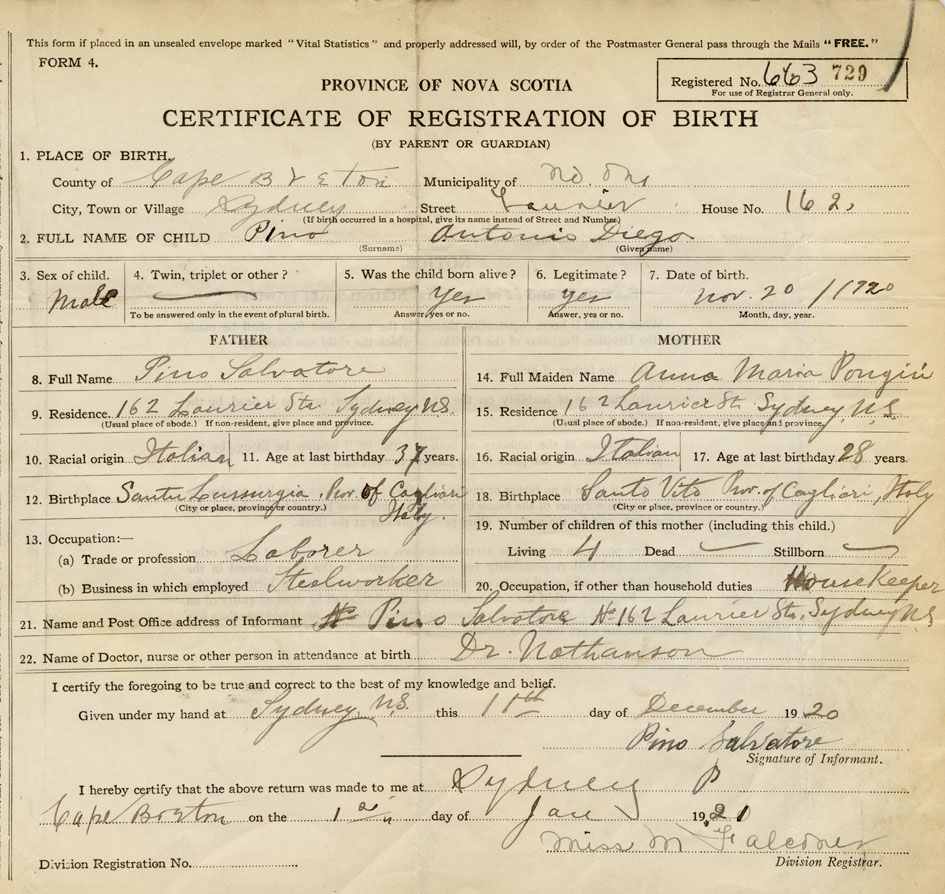 This form if placed in an unsealed envelope marked "Vital Statistics" and properly addressed will, by order of the Postmaster General pass through the Mails "FREE."
FORM 4.
Registered No. 663 729
For use of Registrar General only.
PROVINCE OF NOVA SCOTIA
CERTIFICATE OF REGISTRATION OF BIRTH
(BY PARENT OR GUARDIAN)
1. PLACE OF BIRTH.
County of Cape Breton Municipality of
City, Town or Village Sydney Street Laurier House No. 162.
(If birth occurred in a hospital, give its name instead of Street and Number)
2. FULL NAME OF CHILD Pino Antonio Diego
(Surname) (Given name)
3. Sex of child. 4. Twin, triplet or other? 5. Was the child born alive? 6. Legitimate? 7. Date of birth.
Male Yes Yes Nov. 20 / 1920
To be answered only in the event of plural birth. Answer, yes or no. Answer, yes or no. Month, day, year.
FATHER
8. Full Name Pino Salvatore
9. Residence. 162 Laurier Str. Sydney N.S.
(Usual place of abode.) If non-resident, give place and province.
10. Racial origin Italian 11. Age at last birthday 37 years.
12. Birthplace Santu Lussurgia, Prov. of Cagliari Italy.
(City or place, province or country.)
13. Occupation:—
(a) Trade or profession Laborer
(b) Business in which employed Steelworker
MOTHER
14. Full Maiden Name Anna Maria
15. Residence 162 Laurier St. Sydney, N.S
(Usual place of abode.) If non-resident, give place and province.
16. Racial origin Italian 17. Age at last birthday 28 years.
18. Birthplace Santo Vito Prov. of Cagliari, Italy
(City or place, province or country.)
19. Number of children of this mother (including this child.)
Living 4 Dead Stillborn
20. Occupation, if other than household duties HouseKeeper
21. Name and Post Office address of Informant Pino Salvatore № 162 Laurier Str. Sydney N.S
22. Name of Doctor, nurse or other person in attendance at birth Dr. Nathanson
I certify the foregoing to be true and correct to the best of my knowledge and belief.
Given under my hand at Sydney N.S. this 11th day of December 1920
Pino Salvatore
Signature of Informant.
I hereby certify that the above return was made to me at Sydney
Cape Breton on the day of Jan 1921
Miss M Falconer
Division Registration No. Division Registrar.